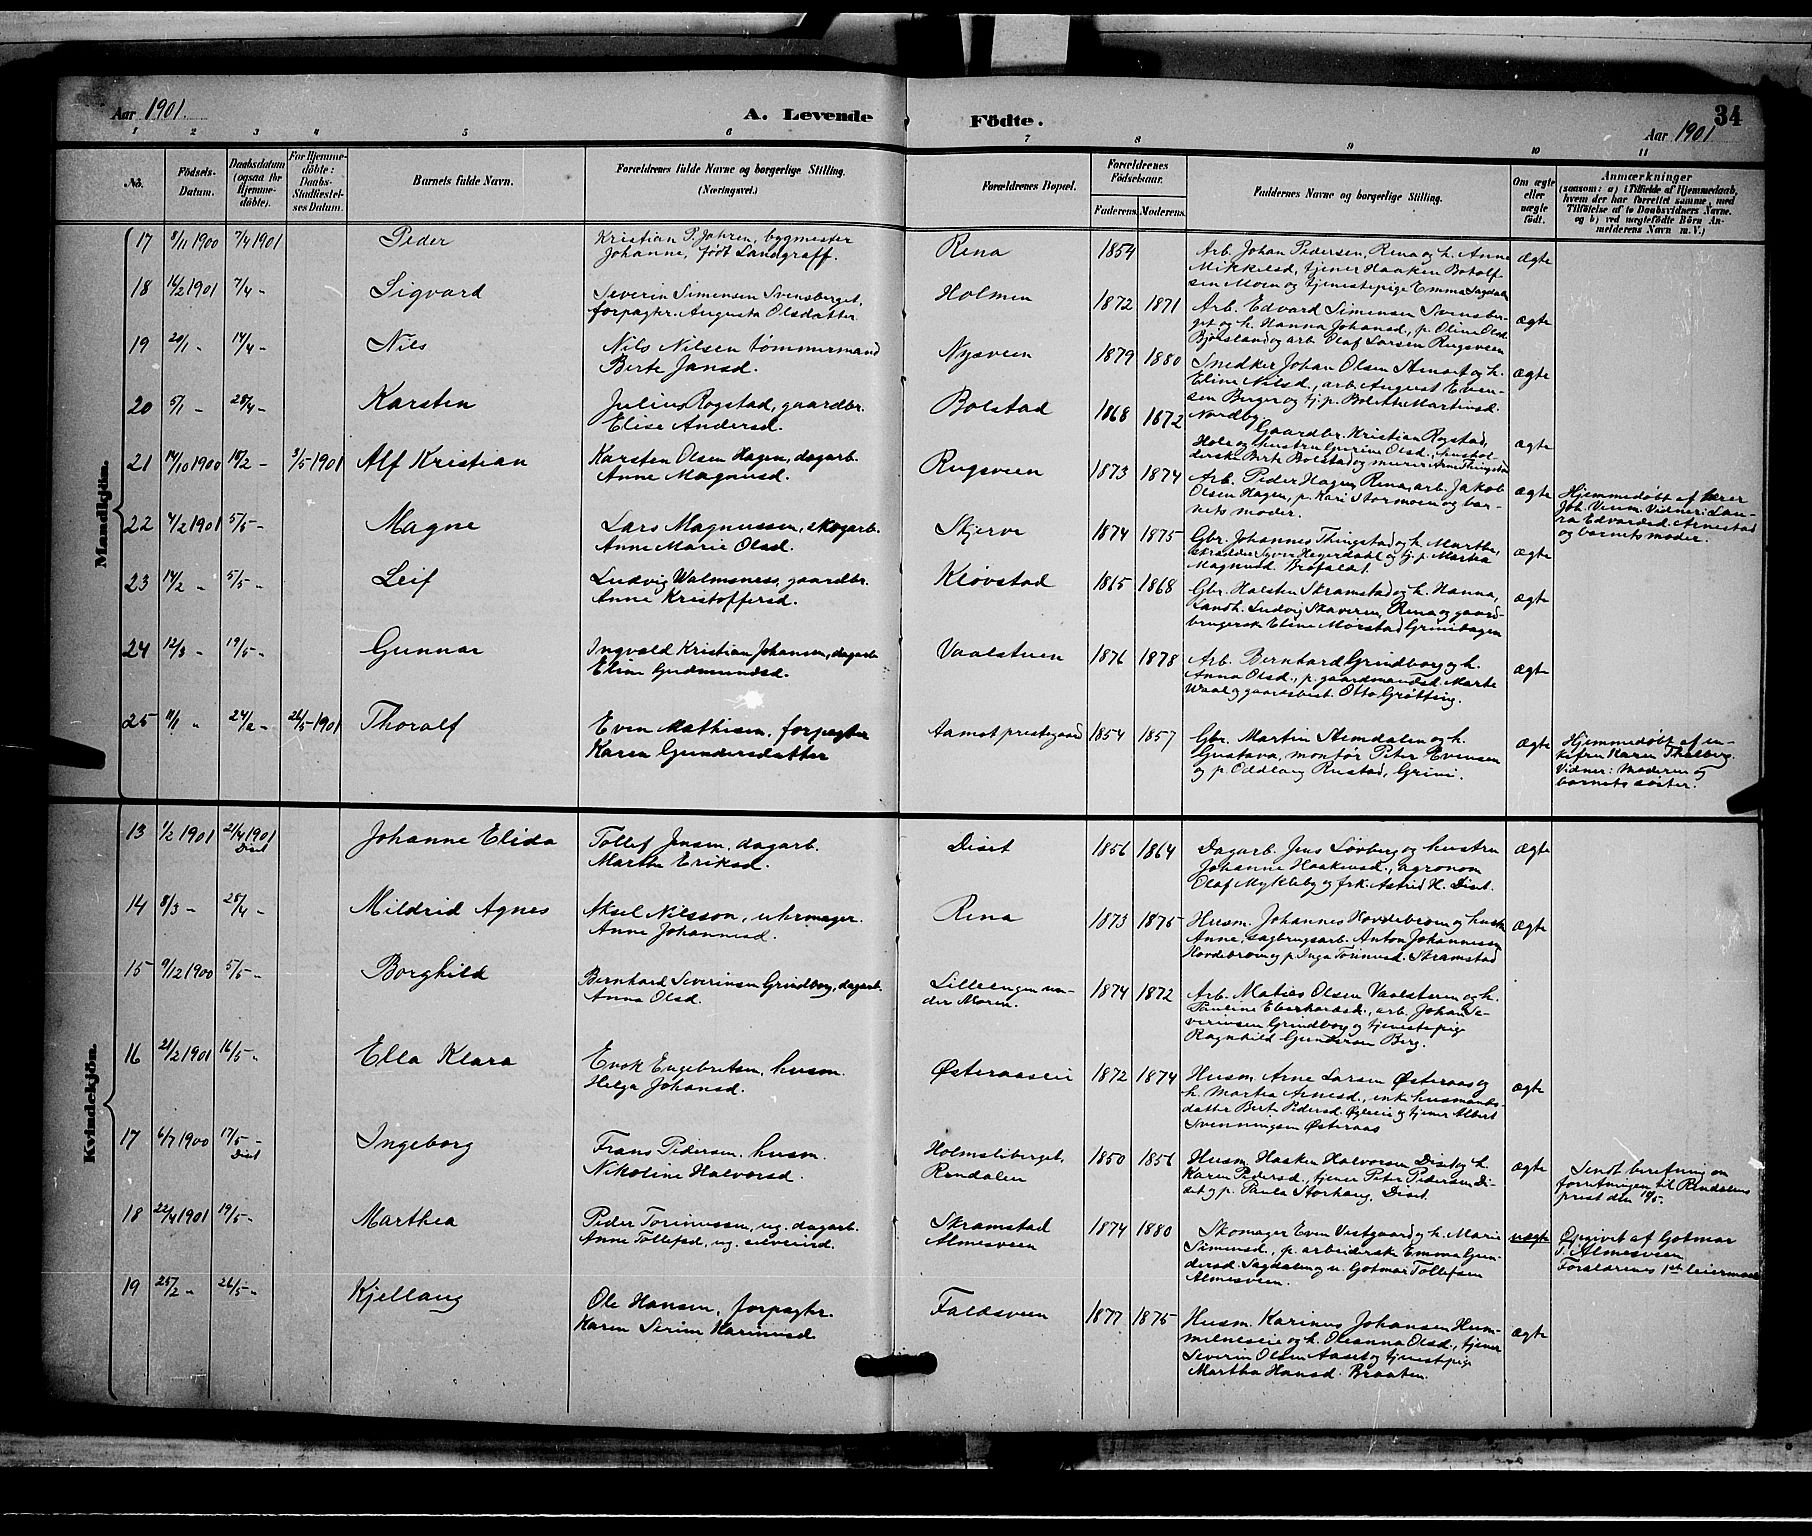 Aar 1901.
A. Levende
Födte.
34
Aar 1901
1 2 3 4 5 6 7 8 9 10 11
No.
Födsels-
Datum.
Daabsdatum
(ogsaa for
Hjemme-
döbte).
For Hjemme-
döbte:
Daabs-
Stadfæstel-
ses Datum.
Barnets fulde Navn.
Forældrenes fulde Navne og borgerlige Stilling.
(Næringsvei.)
Forældrenes Bopæl.
Forældrenes
Födselsaar.
Faderens. Moderens.
Faddernes Navne og borgerlige Stilling.
Om ægte
eller
uægte
födt.
Anmærkninger
(saasom: a) i Tilfælde af Hjemmedaab,
hvem der har forrettet samme, med
Tilföielse af to Daabsvidners Navne.
og b) ved uægtefödte Börn An-
melderens Navn m. V.)
Mandkjön.
17 8/11 1900 7/4 1901 Peder
Kristian P. Jahren, bygmester
Johanne, født Landgraff.
Rena 1854
Arb. Johan Pedersen, Rena og h. Anne
Mikkelsd., tjener Haaken Botolf-
sen Moen og tjenestepige Emma Sagdalen
ægte
18 14/2 1901 7/4 - Sigvard
Severin Simensen Svensberget,
forpagter. Augusta Olsdatter.
Holmen 1872 1871
Arb. Edvard Simensen Svensber-
get og h. Hanna Johansd., p. Oline Olsd.
Bjølsland og arb. Olaf Larsen Rugsveen
ægte
19 20/1 - 14/4 - Nils
Nils Nilsen tømmermand
Berte Jansd.
Nysveen 1879 1880
Snedker Johan Olsen Arnset og h.
Eline Nilsd., arb. August Even-
sen Berger og tj.p. Bolette Martinsd.
Nordby
ægte
20 5/1 - 28/4 - Karsten
Julius Rogstad, gaardbr.
Elise Andersd.
Bolstad 1868 1872
Gaardbr. Kristian Rogstad,
Hole og hustru Gurine Olsd., hushol-
derske Berte Bolstad og murer Arne Thingstad
ægte
21 14/10 1900 15/2 - 3/5 1901 Alf Kristian
Karsten Olsen Hagen, dagarb.
Anne Magnusd.
Rugsveen 1873 1874
Arb. Peder Hagen, Rena, arb. Jakob
Olsen Hagen, p. Kari Stormoen og bar-
nets moder.
ægte
Hjemmedøbt af lærer
Joh. Veum. Vidner: Lau-
ra Edvardsd. Arnestad
og barnets moder.
22 4/2 1901 5/5 - Magne
Lars Magnussen, skogarb.
Anne Marie Olsd.
Skjerve 1874 1875
Gbr. Johannes Thingstad og h. Marthe,
skrædder Syver Heyerdahl og tj. p. Martea
Magnusd. Brofaldet.
ægte
23 14/2 - 5/5 - Leif
Ludvig Walmsness, gaardbr.
Anne Kristoffersd.
Kløvstad 1865 1868
Gbr. Halsten Skramstad og h. Hanna,
Landh. Ludvig Skaveren, Rena og gaard-
brugersk Eline Mørstad Grinihagen
ægte
24 12/3 - 19/5 - Gunnar
Ingvald Kristian Johansen, dagarb.
Eline Gudmundsd.
Vaalstuen 1876 1878
Arb. Bernhard Grindborg og h.
Anna Olsd., p. gaardmandsd. Marte
Waal og gaardsbest. Otto Grøtting.
ægte
25 11/1 - 24/2 - 26/5 1901 Thoralf
Even Mathisen, forpagter
Karen Gundersdatter
Aamot prestegaard 1854 1857
Gbr. Martin Stemdalen og h.
Gustava, montør Peter Evensen
og p. Oddlaug Rustad, Grini.
ægte
Hjemmedøbt af en-
kefru Karen Thalberg.
Vidner: Moderen og
barnets søster.
Kvindekjön.
13 1/2 1901 21/4 1901 Diset Johanne Elida
Tollef Jensen, dagarb.
Marthe Eriksd.
Diset 1856 1864
Dagarb. Jens Løvberg og hustru
Johanne Haakensd., agronom
Olaf Mykleby og frk. Astrid H. Diset.
ægte
14 8/3 - 28/4 - Mildrid Agnes
Aksel Nilsson, uhrmager.
Anne Johannesd.
Rena 1873 1875
Husm. Johannes Hovdebroen og hustr.
Anne, sagbrugsarb. Anton Johannessen
Hovdebroen og p. Inga Tørrisd. Skramstad
ægte
15 9/12 1900 5/5 - Borghild
Bernhard Severinsen Grindborg, dagarb.
Anna Olsd.
Lilleengen un-
der Moren. 1874 1872
Arb. Matias Olsen Vaalstuen og h.
Pauline Eberhardsd., arb. Johan Se-
verinsen Grindborg og tjenestepig
Ragnhild Gundersen Berg.
ægte
16 21/2 1901 16/5 - Ella Klara
Enok Engebretsen, husm.
Helga Johansd.
Østeraaseie 1872 1874
Husm. Arne Larsen Østeraas og
h. Martea Arnesd., enke husmands-
datter Berte Pedersd. Øgleeie og tjener Albert
Svenningsen Østeraas
ægte
17 6/7 1900 17/5 - Diset Ingeborg
Frans Pedersen, husm.
Nikoline Halvorsd.
Holmsliberget,
Rendalen 1850 1856
Husm. Haaken Halvorsen Diset og h.
Karen Pedersd., tjener Peter Pedersen Di-
set og p. Paula Storhaug, Diset.
ægte
Sendt beretning om
forretningen til Rendalens
prest den 18/5.
18 22/4 1901 19/5 - Marthea
Peder Torinussen, ug. dagarb.
Anne Tollefsd., ug. selveierd.
Skramstad
Almesveen 1874 1880
Skomager Even Vestgaard og h. Marie
Simensd., p. arbeidersk Emma Gun-
dersd. Sagdalen og u. Gotmar Tollefsen
Almesveen.
uægte
Opgivet af Gotmar
T. Almesveen
Forældrenes 1ste leiermaal
19 25/2 - 26/5 - Kjellaug
Ole Hansen, forpagter.
Karen Serine Karinusd.
Faldsveen 1877 1875
Husm. Karinus Johansen Hum-
melneseie og h. Oleanna Olsd., tjener
Severin Olsen Aaset og tjenestepige
Martha Hansd. Braaten.
ægte